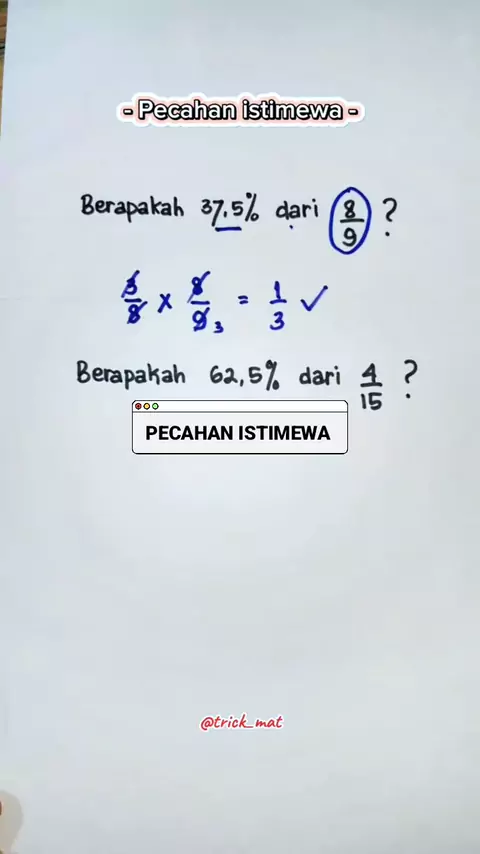 - Pecahan istimewa -
Berapakah 37,5% dari 8/9 ?
3/8 x 8/9 3 = 1/3 ✓
Berapakah 62,5% dari 4/15 ?
PECAHAN ISTIMEWA
@trick_mat